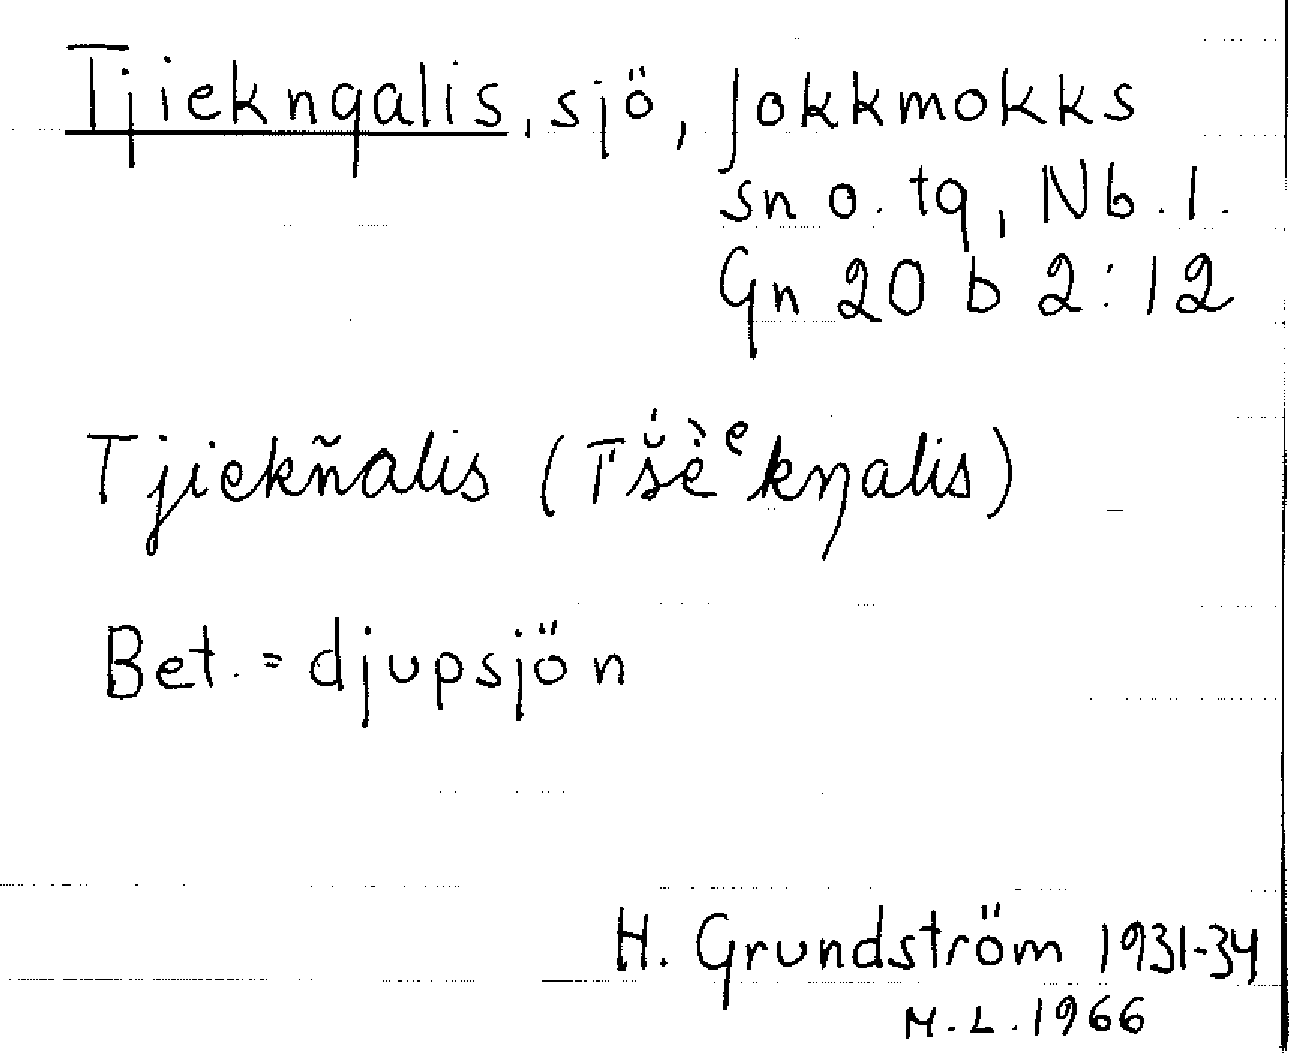 Tjiekngalis, sjö, Jokkmokks
sn o. tg, Nb. l.
Gn 20 b 2:12
Tjiekñalis (Tšè̆ᵉkŋalis)
Bet. = djupsjön
H. Grundström 1931-34
M.L. 1966